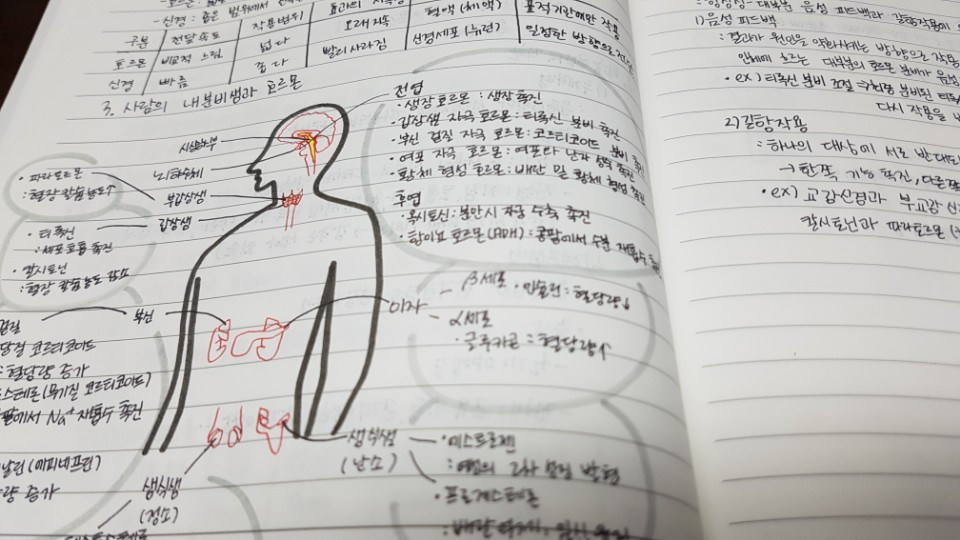 구분 전달 속도 작용 범위 효과의 지속성
호르몬 비교적 느림 넓다 오래 지속 혈액(체액) 표적기관에만 작용
신경 빠름 좁다 빨리 사라짐 신경세포(뉴런) 일정한 방향으로
3. 사람의 내분비샘과 호르몬
전엽
· 생장 호르몬 : 생장 촉진
· 갑상샘 자극 호르몬 : 티록신 분비 촉진
· 부신 겉질 자극 호르몬 : 코르티코이드 분비 촉진
· 여포 자극 호르몬 : 여포와 난자 성숙 촉진
· 황체 형성 호르몬 : 배란 및 황체 형성 촉진
후엽
· 옥시토신 : 분만시 자궁 수축 촉진
· 항이뇨 호르몬(ADH) : 콩팥에서 수분 재흡수
시상하부
뇌하수체
부갑상샘
갑상샘
· 파라토르몬
: 혈장 칼슘농도↑
· 티록신
: 세포호흡 촉진
· 칼시토닌
: 혈장 칼슘농도 감소
부신
겉질
당질 코르티코이드
: 혈당량 증가
스테론(무기질 코르티코이드)
에서 Na⁺ 재흡수 촉진
날린(에피네프린)
량 증가
이자
β세포
· 인슐린 : 혈당량↓
α세포
· 글루카곤 : 혈당량↑
생식샘
(난소)
· 에스트로젠
: 여성의 2차 성징 발현
· 프로게스테론
생식샘
(정소)
음성 피드백과 길항작용에
1) 음성 피드백
: 결과가 원인을 약화시키는 방향으로 작용
대부분의 호르몬 분비가 음성
· ex) 티록신 분비 조절
다시 작용을
2) 길항작용
: 하나의 대상에 서로 반대로
→ 한쪽 기능 촉진, 다른쪽
· ex) 교감신경과 부교감 신
칼시토닌과 파라토르몬